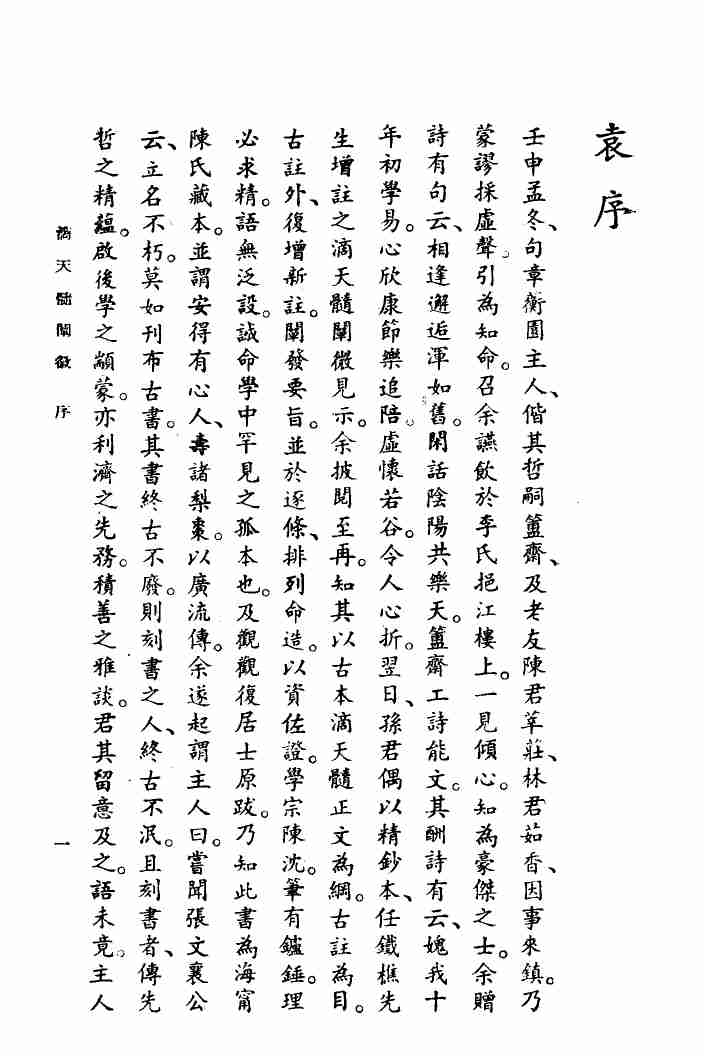 袁序
壬申孟冬、句章衡園主人、偕其哲嗣簠齋、及老友陳君莘莊、林君茹香、因事來鎮。乃
蒙謬採虛聲。引為知命。召余讌飲於李氏挹江樓上。一見傾心。知為豪傑之士。余贈
詩有句云、相逢邂逅渾如舊。閑話陰陽共樂天。簠齋工詩能文。其酬詩有云、媿我十
年初學易。心欣康節樂追陪。虛懷若谷。令人心折。翌日、孫君偶以精鈔本、任鐵樵先
生增註之滴天髓闡微見示。余披閱至再。知其以古本滴天髓正文為綱。古註為目。
古註外、復增新註。闡發要旨。並於逐條、排列命造。以資佐證。學宗陳沈。筆有鑪錘。理
必求精。語無泛設。誠命學中罕見之孤本也。及觀觀復居士原跋。乃知此書為海甯
陳氏藏本。並謂安得有心人、壽諸梨棗。以廣流傳。余遂起謂主人曰。嘗聞張文襄公
云、立名不朽。莫如刊布古書。其書終古不廢。則刻書之人、終古不泯。且刻書者、傳先
哲之精蘊。啟後學之顓蒙。亦利濟之先務。積善之雅談。君其留意及之。語未竟。主人
滴天髓闡微 序 一